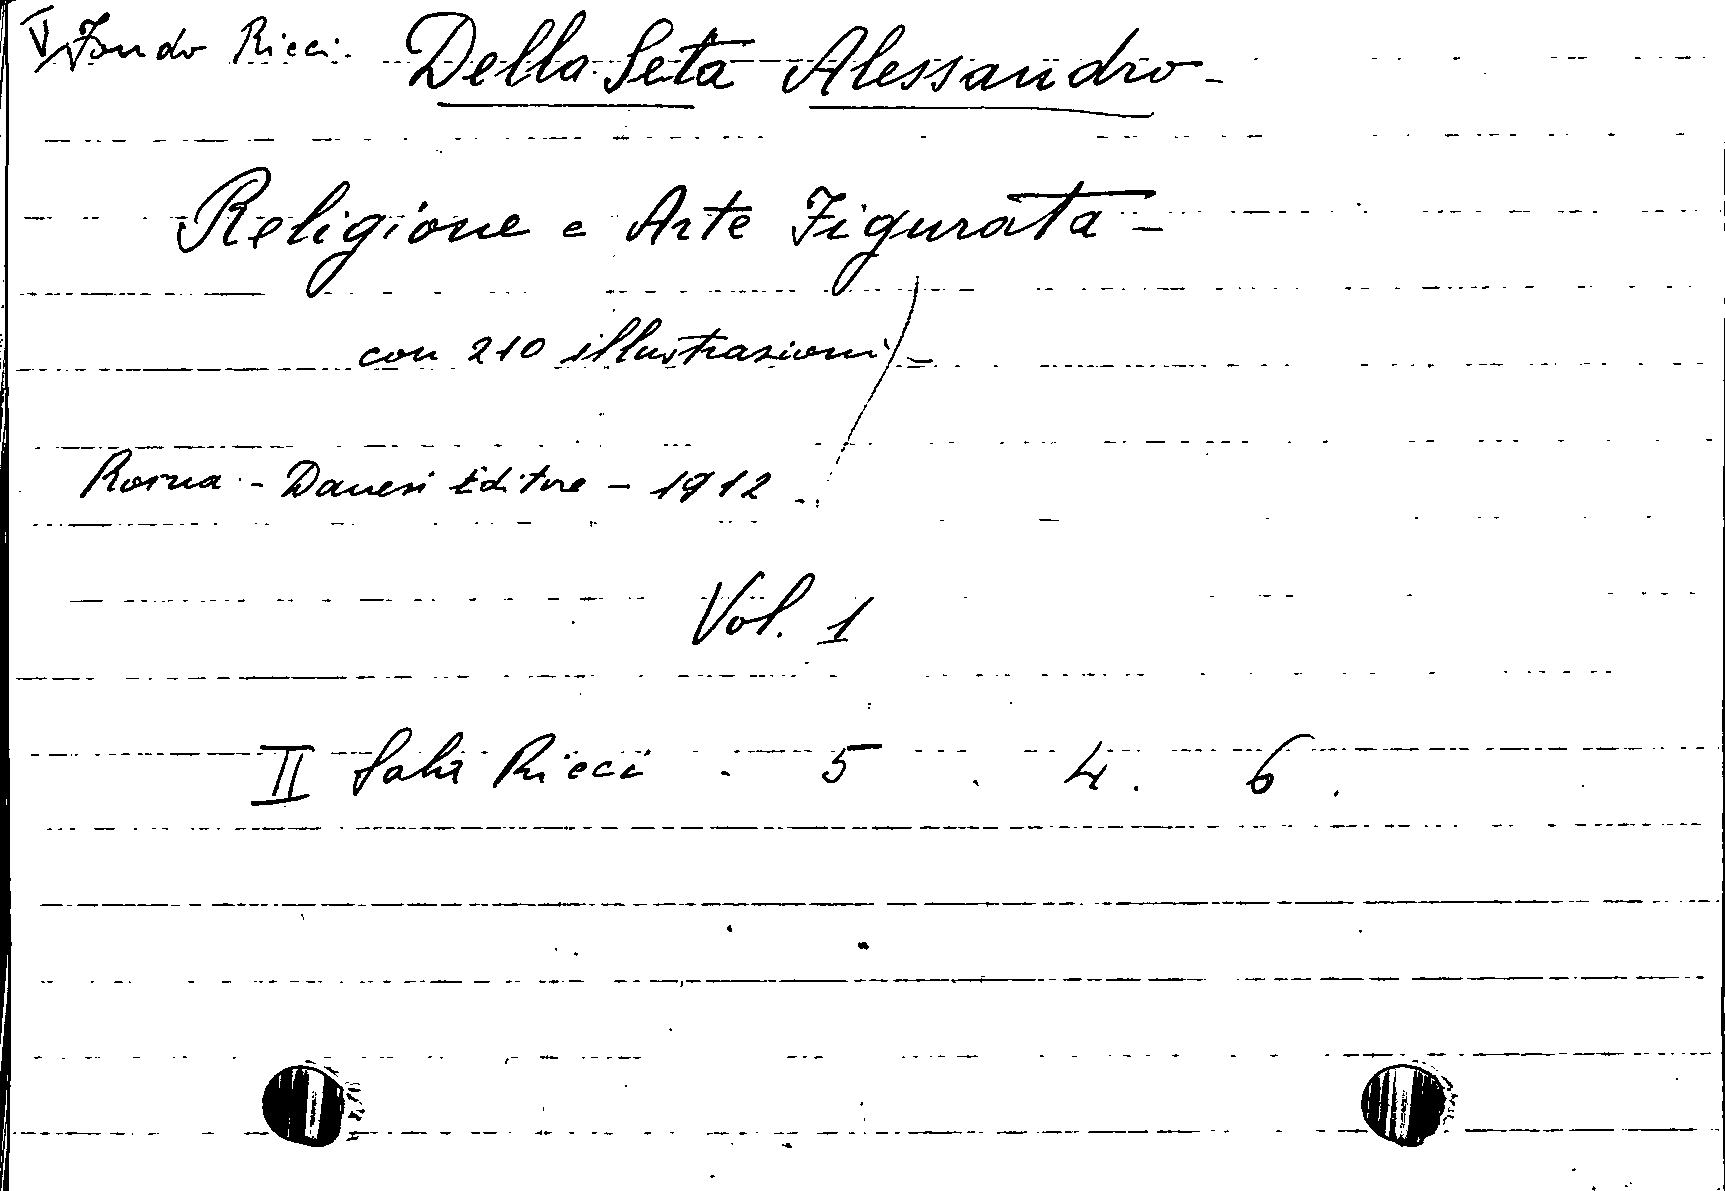 V Fondo Ricci. Della Seta Alessandro -
Religione e Arte Figurata -
con 210 illustrazioni -
Roma - Danesi Editore - 1912 -
Vol. 1
II Sala Ricci . 5 . 4 . 6 .